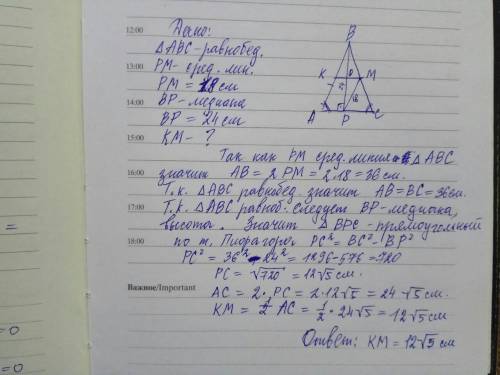 12:00
Дано:
△ABC-равнобед.
13:00
PM- сред. лин.
PM = 18 см
14:00
BP-медиана
BP = 24 см
15:00
KM- ?
B
K
M
A
P
C
18
Так как PM сред. линия △ABC
16:00
значит AB = 2 PM = 2·18 = 36 см.
Т.к. △ABC равнобед. значит AB=BC=36см.
17:00
Т.к. △ABC равноб. следует BP-медиана,
высота. Значит △BPC-прямоугольный
18:00
по т. Пифагора. PC² = BC² - BP²
PC² = 36² - 24² = 1296-576=720
PC = √720 = 12√5 см.
Важное/Important
AC = 2·PC = 2·12√5 = 24·√5 см.
KM = 1/2 AC = 1/2 · 24√5 = 12√5 см
Ответ: KM = 12√5 см
=
=0
=0